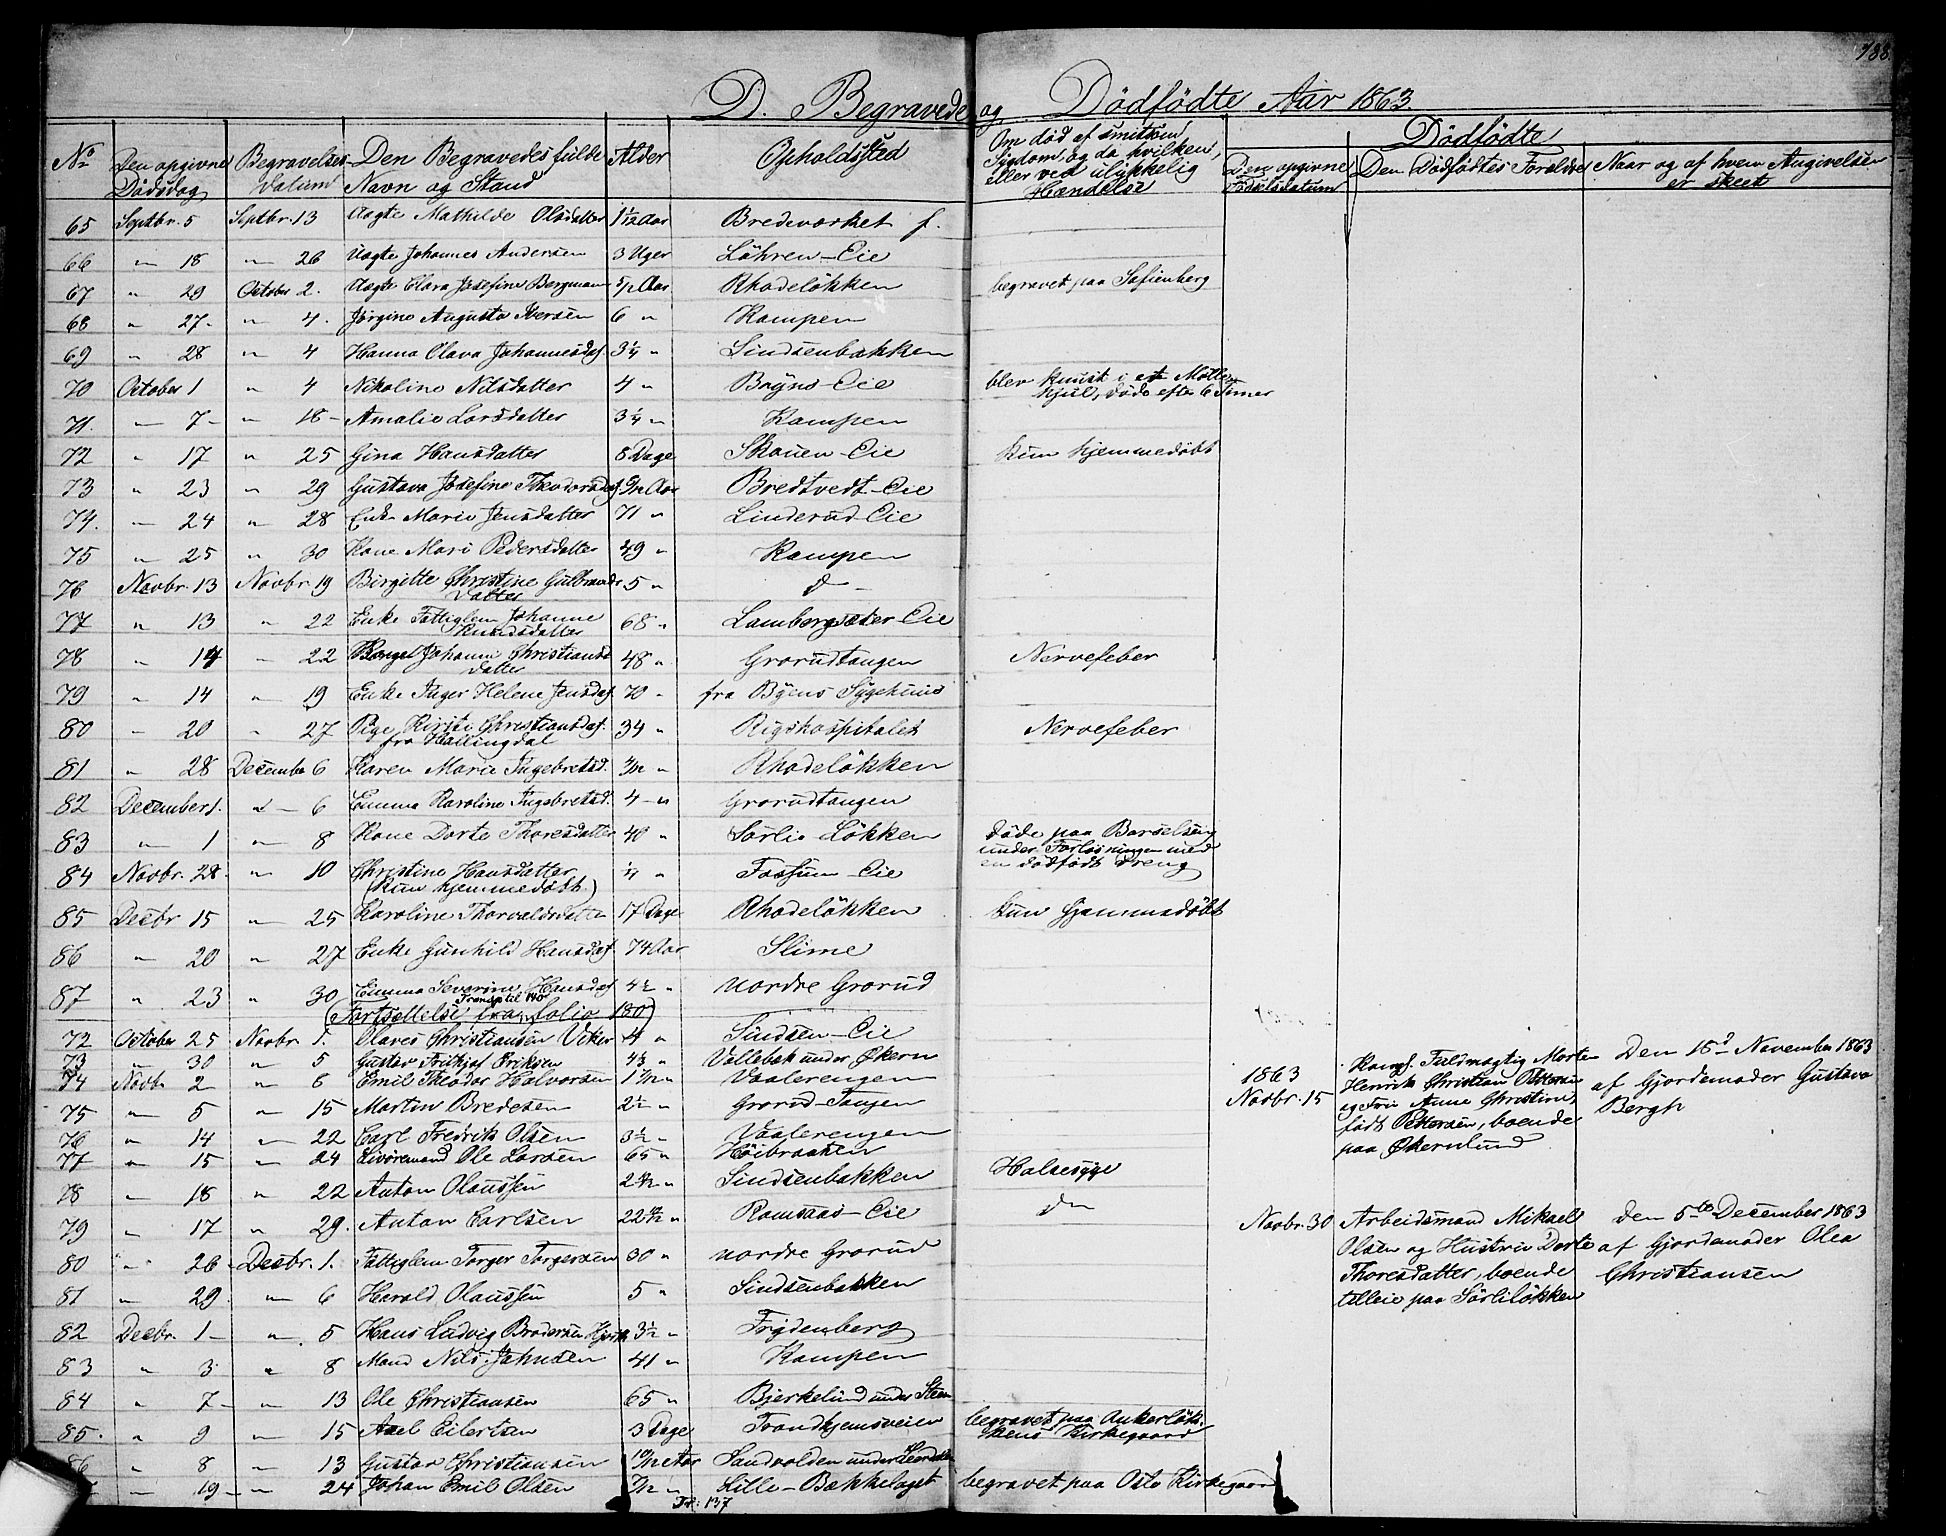 138.
D. Begravede og Dödfödte Aar 1863
No Den opgivne Dödsdag Begravelses Datum Den Begravedes fulde Navn og Stand Alder Opholdssted Om död af smitsom Sygdom, og da hvilken, eller ved ulykkelig Hændelse Dödfödte
Den opgivne Födselsdatum Den Dödfödtes Forældre Naar og af hvem Angivelsen er skeet
65 Septbr. 5 Septbr. 13 Uægte Mathilde Olsdatter 1 1/12 Aar Bredeværket f.
66 " 18 " 26 Uægte Johannes Andersen 3 Uger Löhren-Eie
67 " 29 October 2. Uægte Clara Josefine Bergman 5/12 Aar Rhodelökken begravet paa Sofienberg
68 " 27 " 4. Jörgine Augusta Iversen 6 " Kampen
69 " 28 " 4 Hanna Clava Johannesdat. 3 1/4 " Sindsenbakken
70 October 1 " 4 Nikoline Nilsdatter 4 " Bryns Eie blev knust i et Mölle hjul, döde efter 6 Timer
71. " 7 " 18 Amalie Larsdatter 3 1/4 " Kampen
72 " 17 " 25 Gina Hansdatter 8 Dage Skouen-Eie kun hjemmedöbt
73 " 23 " 29 Gustava Josefine Theodorsdat. Aar Bredtvedt-Eie
74. " 24 " 28 Enke Marie Jensdatter 71 " Linderud Eie
75 " 25 " 30 Kone Mari Pedersdatter 49 " Kampen
76 Novbr. 13 Novbr. 19 Birgitte Christine Gulbrands Datter 5 " d -
77 " 13 " 22 Enke Fattiglem Johanne Knudsdatter 68 " Lambergsæter Eie
78 " 14 " 22 Johanne Christians datter 48 " Grorudtangen Nervefeber
79 " 14 " 19 Enke Inger Helene Jensdat. 70 " fra Byens Sygehuus
80 " 20 " 27 Pige Kirsti Christiansdat. fra Hallingdal 34 " Rigshospitalet Nervefeber
81 " 28 December 6 Karen Marie Ingebretsd. 3/12 " Rhodelökken
82 December 1. d - 6 Emma Karoline Ingebretsd. 4 " Grorudtangen
83 " 1 " 8 Kone Dorte Thoresdatter 40 " Sörlie Lökken döde paa Barselseng under Forlösningen med en dödfödt Dreng
84 Novbr. 28 " 10 Christine Hansdatter (kun hjemmedöbt) 1/4 " Fossum Eie
85 Decbr 15 " 25 Karoline Thorvaldsdatter 17 Dage Rhodelökken kun hjemmedöbt
86 " 20 " 27 Enke Gunhild Hansdat. 74 Aar Slime
87 " 23 " 30 Emma Severine Hansdat 4 1/2 " Nordre Grorud
Transp. til 140
(Fortsættelse fra folio 130)
72 October 25 Novbr. 1. Olaves Christiansen Viker 4 " Sindsen-Eie
73 " 30 " 5 Gustav Frithjof Eriksen " Vollebæk under Økern
74 Novb. 2 " 8 Emil Theodor Halvorsen " Vaalerengen
75 " 5 " 15 Martin Bredesen 2 1/2 " Grorud-Tangen
76 " 14 " 22 Carl Fredrik Olsen 3 1/2 " Vaalerengen
77 " 15 " 24 Livöremand Ole Larsen 65 " Höibraaten
78 " 18 " 22 Anton Olaussen " Sindsenbakken Halsesyge
79 " 17 " 29. Anton Carlsen " Ramsaas-Eie do
80 " 26 Decbr. 1. Fattiglem Torger Torgersen 30 " Nordre Grorud
81 " 29 " 6 Harald Olaussen 5 " Sindsenbakken
82 Decbr. 1 " 5 Hans Ludvig Brodersen Hjorth 3 1/2 " Frydenberg
83 " 3 " 8 Mand Nils Johnsen 41 " Kampen
84 " 7 " 13 Ole Christiansen 65 " Bjerkelund under Steen
85. " 9 " 15 Axel Eilertsen 3 Dage Trondhjemsveien begravet paa Ankerlök kens Kirkegaard
86 " 8 " 13 Gustav Christiansen Sandvolden under
" 19 " 24 Johan Emil Olsen Lille-Bækkelaget begravet paa Oslo Kirkegaard
Tr: 137
1863
Novbr. 15 Kongl. Fuldmægtig Morten Henrik Christian Petersen og Fru Anne Christine, født Petersen, boende paa Økernlund
Den 15d November 1863 af Gjordemoder Gustava Bergh
Novbr. 30 Arbeidsmand Mikael Olsen og Hustru Dorte Thoresdatter, boende tilleie paa Sörlilökken
den 5te December 1863 af Gjordemoder Olea Christiansen